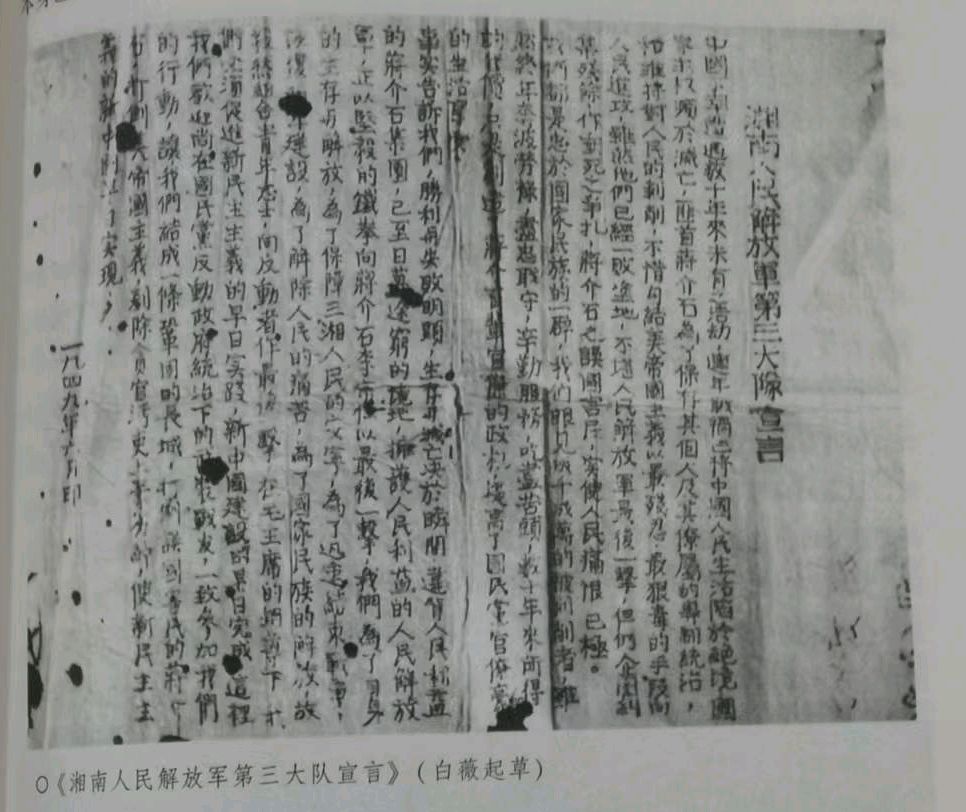 湘南人民解放軍第三大隊宣言
中國人民遭遇數十年來未有之浩劫,連年戰禍已將中國人民生活陷於絕境國
家 於滅亡,匪首蔣介石為了保存其個人及其僚屬的專制統治,
維持對人民的剝削,不惜勾結美帝國主義以最殘忍最狠毒的手段向
人民進攻,雖然他們已經一敗塗地,不堪人民解放軍最後一擊,但仍企圖糾
集殘餘作垂死之爭扎,將介石之誤國害民,實使人民痛恨已極。
我們都是忠於國家民族的一群,我們眼見成千成萬的被剝削者,雖
終年奔波勞祿,盡忠職守,辛勤服務,吃盡苦頭,數十年來所得
的代價,只是 官僚的政权,遠离了國民黨官僚
的生活
事实告訴我們,勝利與失敗明顯,生存與滅亡決於瞬間,違背人民利益
的蔣介石集團,已至日暮途窮的境地,擁護人民利益的人民解放
軍,正以堅毅的鐵拳向蔣介石李宗仁以最後一擊,我們為了自身
的生存与解放,為了保障三湘人民的安寧,為了迅速結束戰爭,
恢復 建設,為了解除人民的痛苦,為了國家民族的解放,故
集結 青年志士,向反動者作最後一擊,在毛主席的領導下,才
們 須促進新民主主義的早日实践,新中國建設的早日完成,這裡
我們歡迎尚在國民黨反動政府統治下的 戰友,一致參加我們
的行動,讓我們結成一條鞏固的長城,打倒誤國害民的蔣
打倒美帝國主義,剷除貪官污吏土豪劣紳,使新民主主
義的新中國 实現。
一九四九年六月印
○《湘南人民解放军第三大队宣言》(白薇起草)